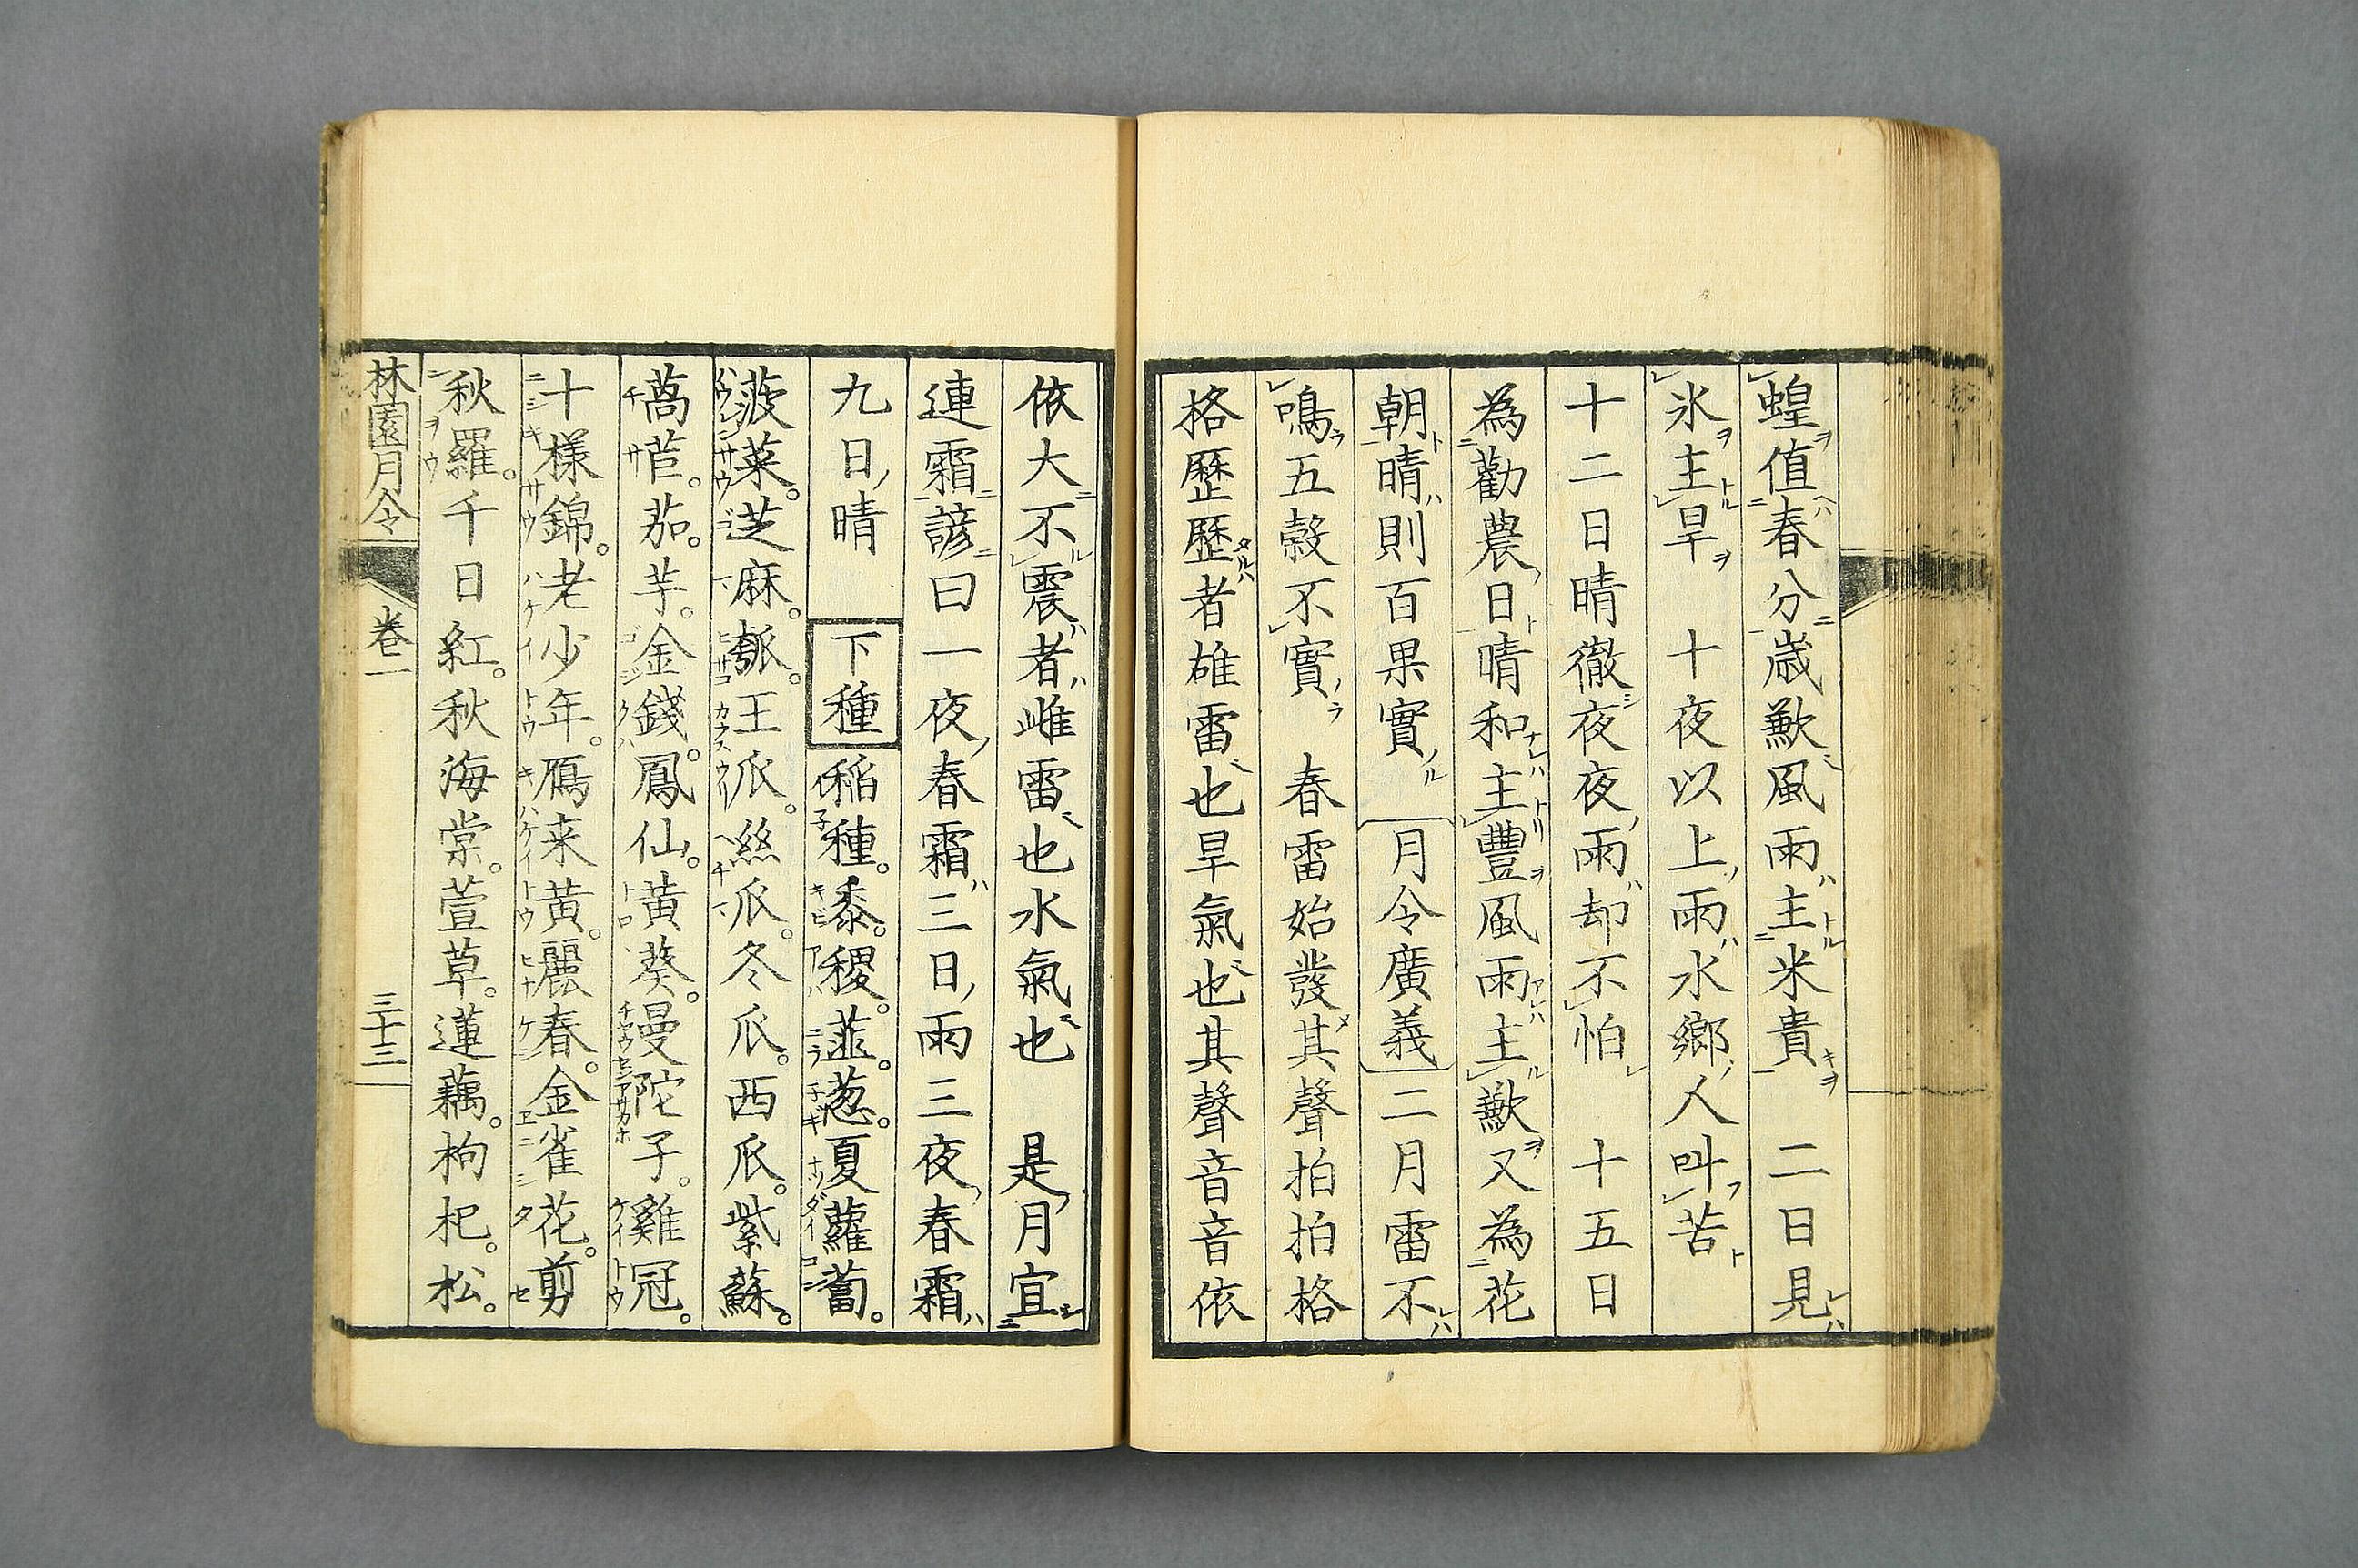 蝗値春分歳歉風雨主米貴　二日見
氷主旱　十夜以上雨水郷人叫苦
十二日晴徹夜夜雨却不怕　十五日
為勸農日晴和主豐風雨主歉又為花
朝晴則百果實　月令廣義　二月雷不
鳴五穀不實　春雷始發其聲拍拍格
格歴歴者雄雷也旱氣也其聲音音依
依大不震者雌雷也水氣也　是月宜
連霜諺曰一夜春霜三日雨三夜春霜
九日晴　下種　稲種。黍。稷。韮。葱。夏蘿蔔。
菠菜。芝麻。瓠。王瓜。絲瓜。冬瓜。西瓜。紫蘇。
萵苣。茄。芋。金錢。鳳仙。黄葵。曼陀子。雞冠。
十様錦。老少年。鴈来黄。麗春。金雀花。剪
秋羅。千日紅。秋海棠。萱草。蓮藕。枸杞。松。
林園月令　巻一　三十三